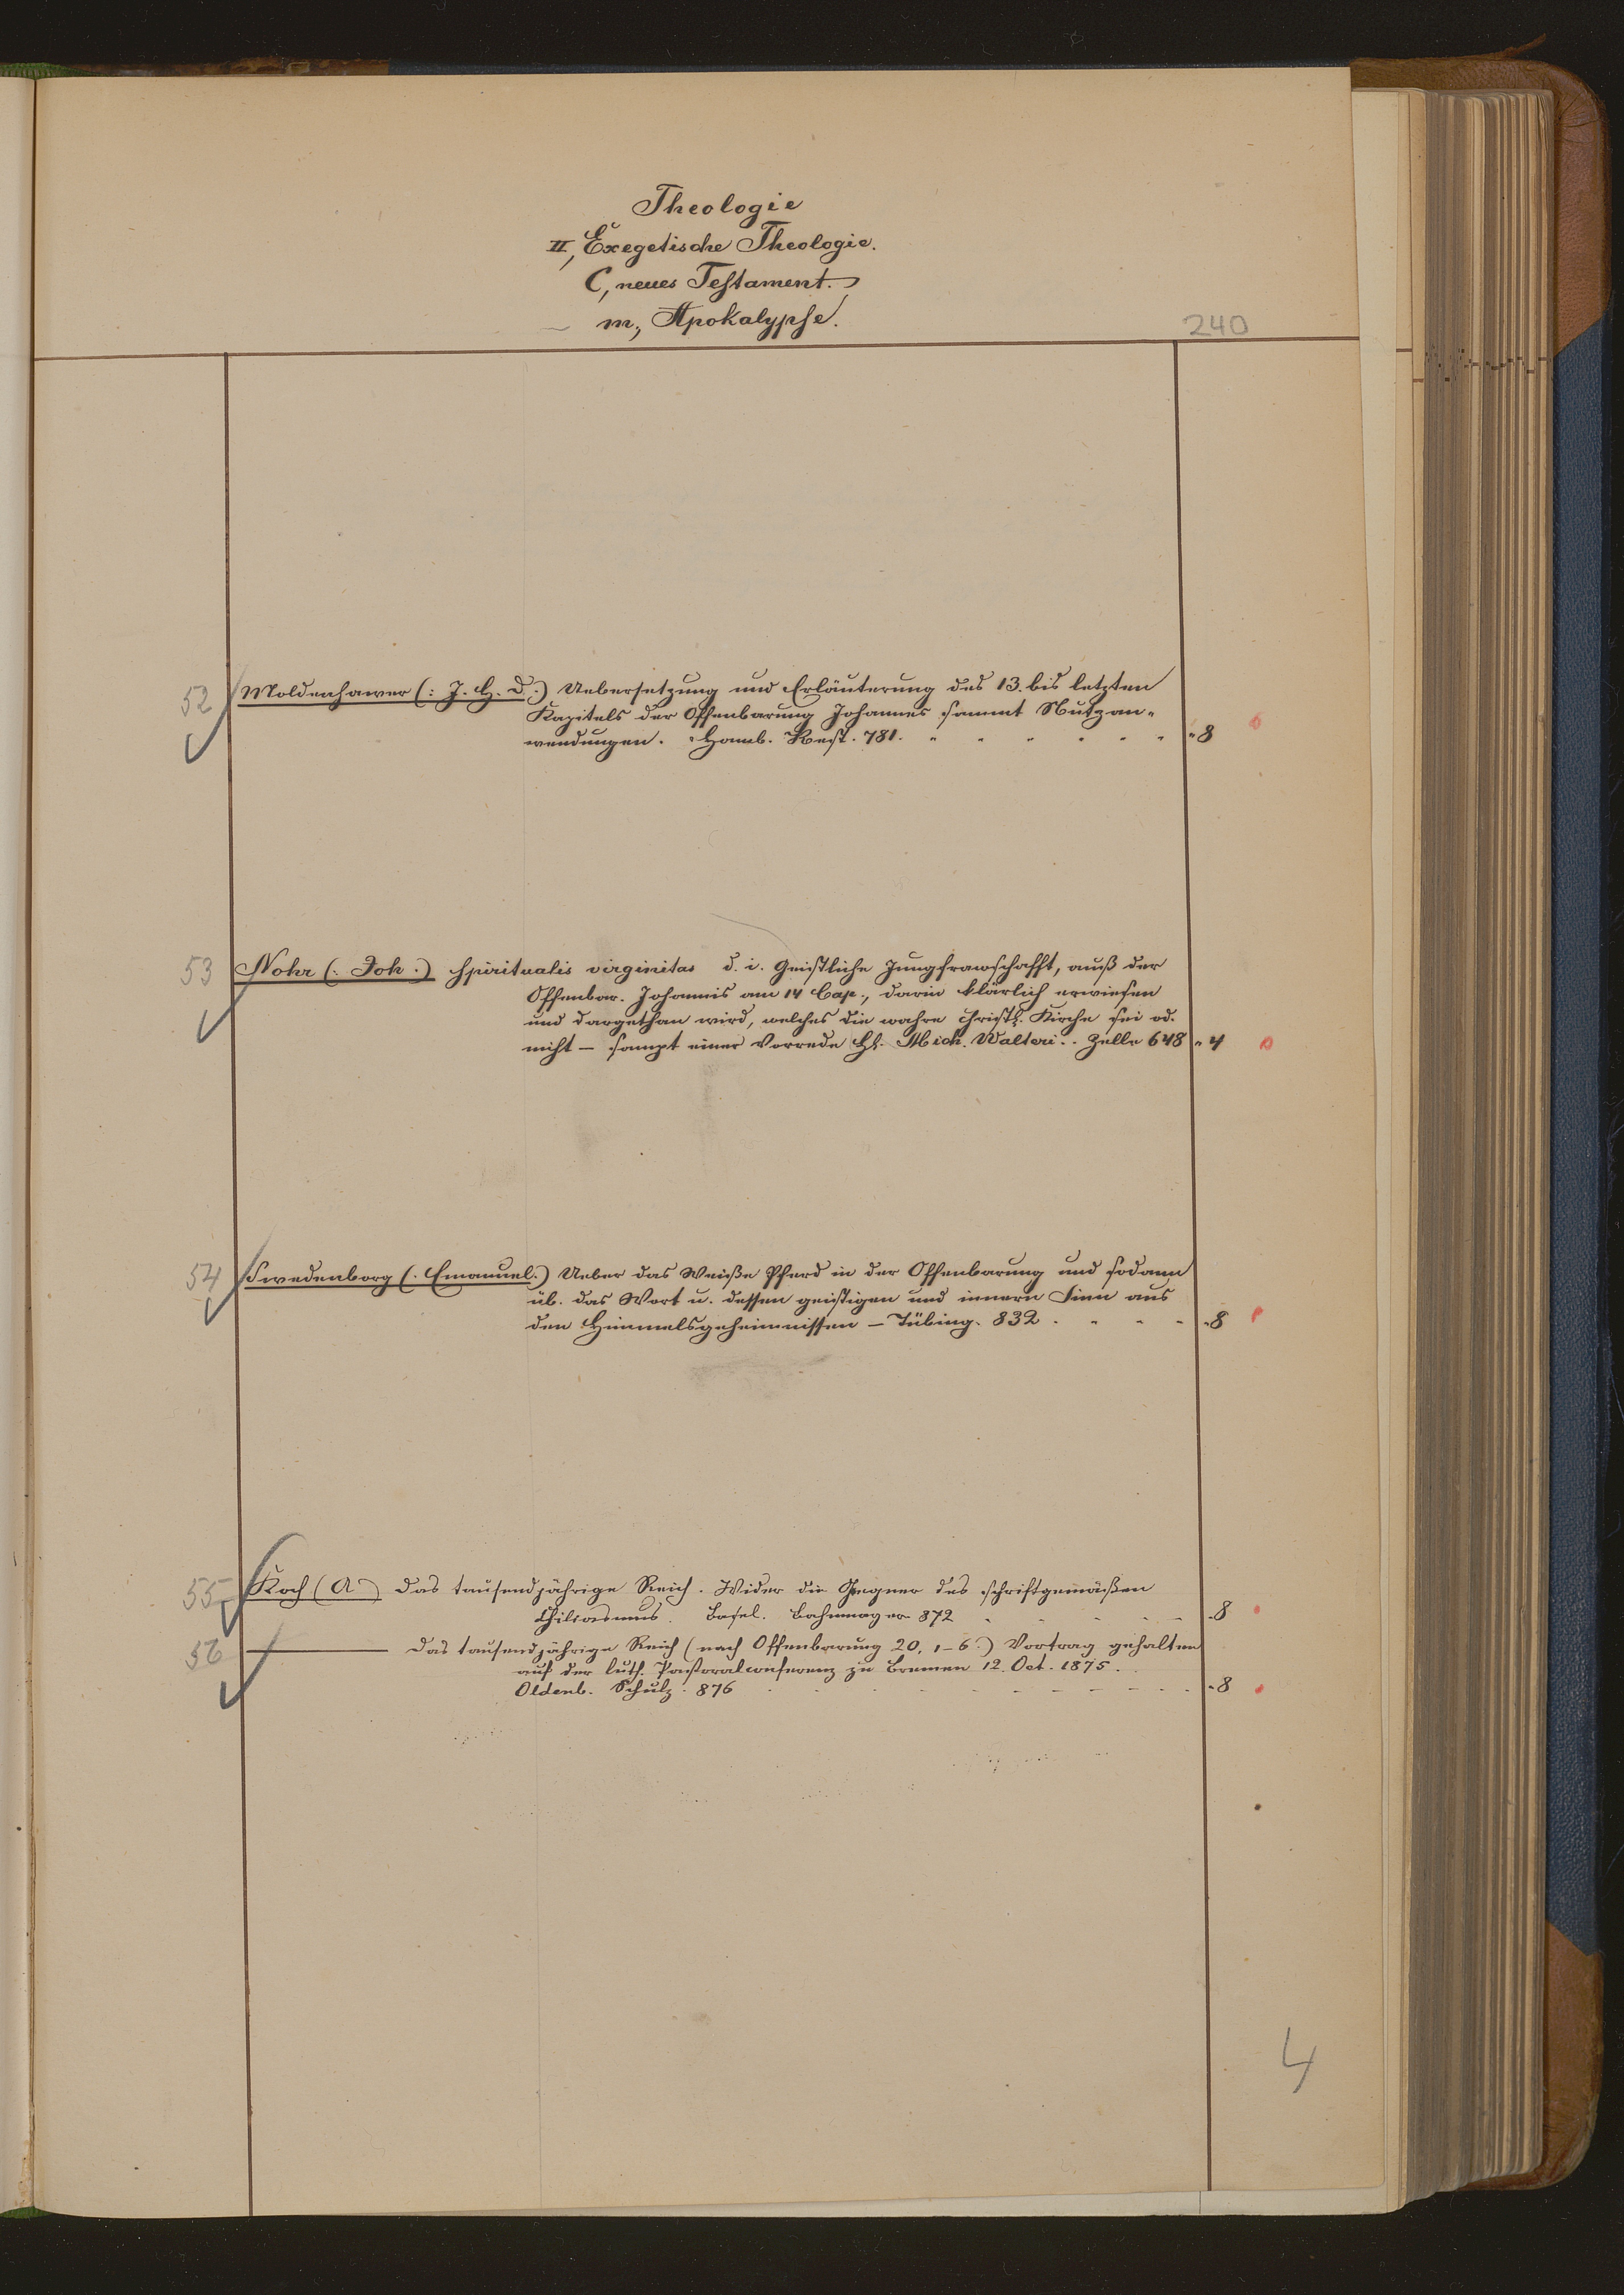 Theologie
II, Exegetische Theologie.
C, neues Testament.
m, Apokalypse.
240
52 Moldenhawer (: J. H. D.:) Uebersetzung und Erläuterung des 13. bis letzten
Kapitels der Offenbarung Johannes sammt Nutzan-
wendungen. Hamb. 781. " 8
53 Nohr (: Joh.:) Spiritualis virginitas d. i. Geistliche Jungfrawschafft, auß der
Offenbar. Johannis am 14 Cap., darin klärlich erwiesen
und dargethan wird, welches die wahre christl. Kirche sei od.
nicht – sampt einer Vorrede H. Mich. Walteri. Zelle 648 " 4
54 Swedenborg (: Emanuel:) Ueber das Weiße Pferd in der Offenbarung und sodann
üb. das Wort u. dessen geistigen und innern Sinn aus
den Himmelsgeheimnissen – Tübing. 832 " 8
55 Koch (A) Das tausendjährige Reich. Wider die Gegner des schriftgemäßen
Chiliasmus. Basel. Bahnmayer 872 8
56 ——— Das tausendjährige Reich (nach Offenbarung 20, 1–6) Vortrag gehalten
auf der luth. Pastoralconferenz zu Bremen 12. Oct. 1875.
Oldenb. Schulz. 876 " 8
4